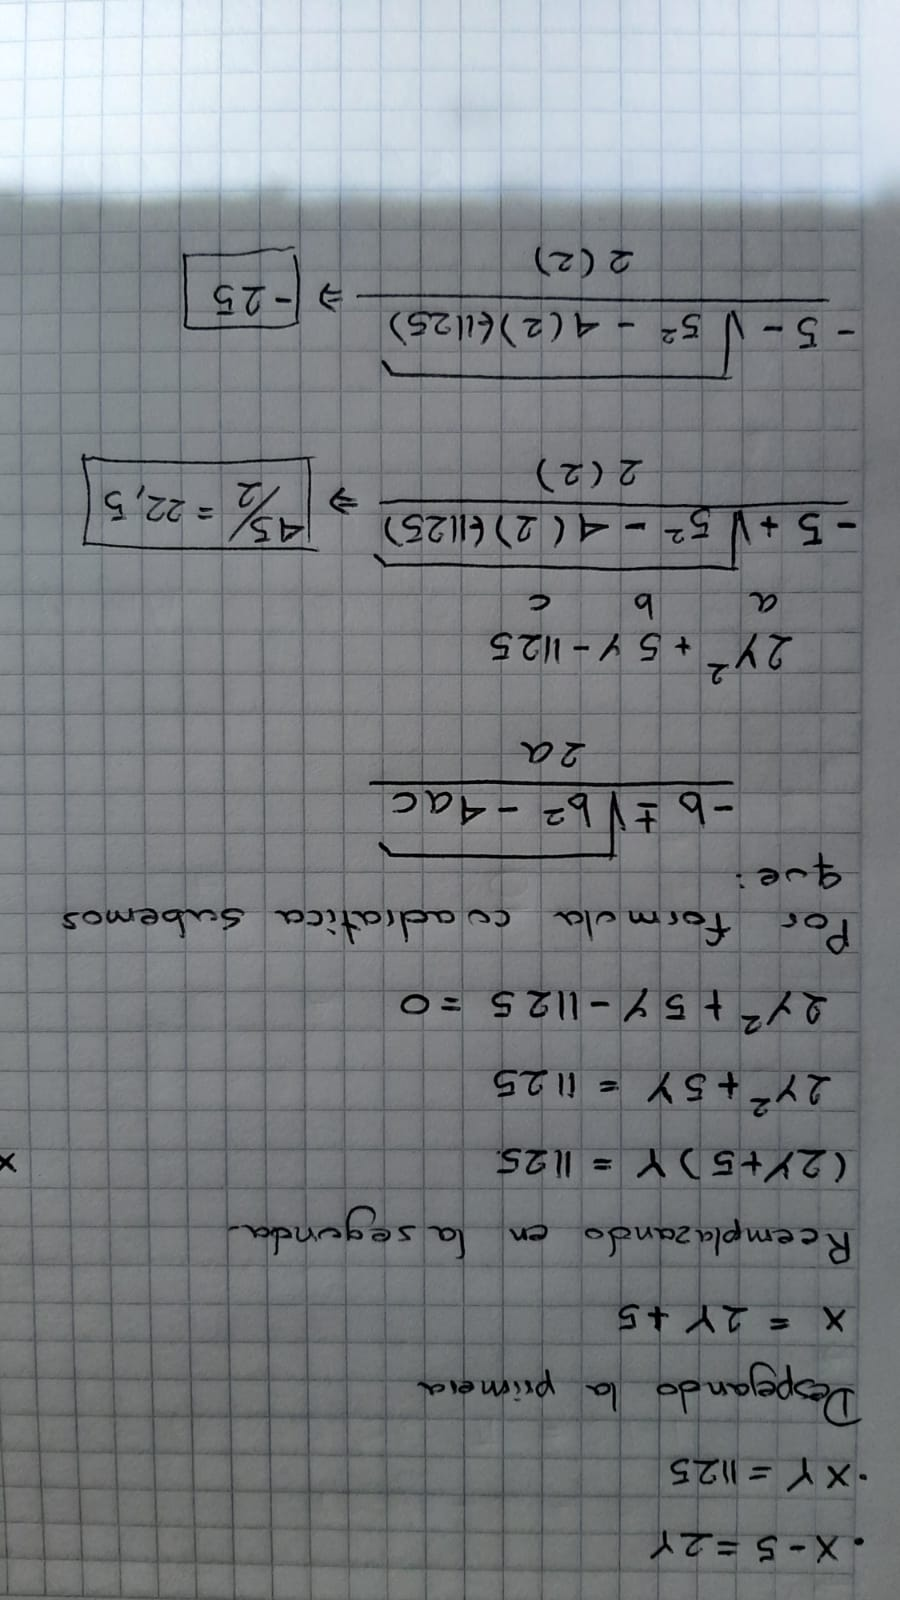 . X - 5 = 2Y
. X Y = 1125
Despegando la primera
X = 2Y + 5
Reemplazando en la segunda.
(2Y + 5) Y = 1125
X
2Y² + 5Y = 1125
2Y² + 5Y - 1125 = 0
Por formula cuadratica sabemos
que:
-b ± √b² - 4ac
2a
2Y² + 5Y - 1125
a b c
-5 + √5² - 4(2)(-1125)
2(2)
⇒ 45/2 = 22,5
-5 - √5² - 4(2)(-1125)
2(2)
⇒ -25